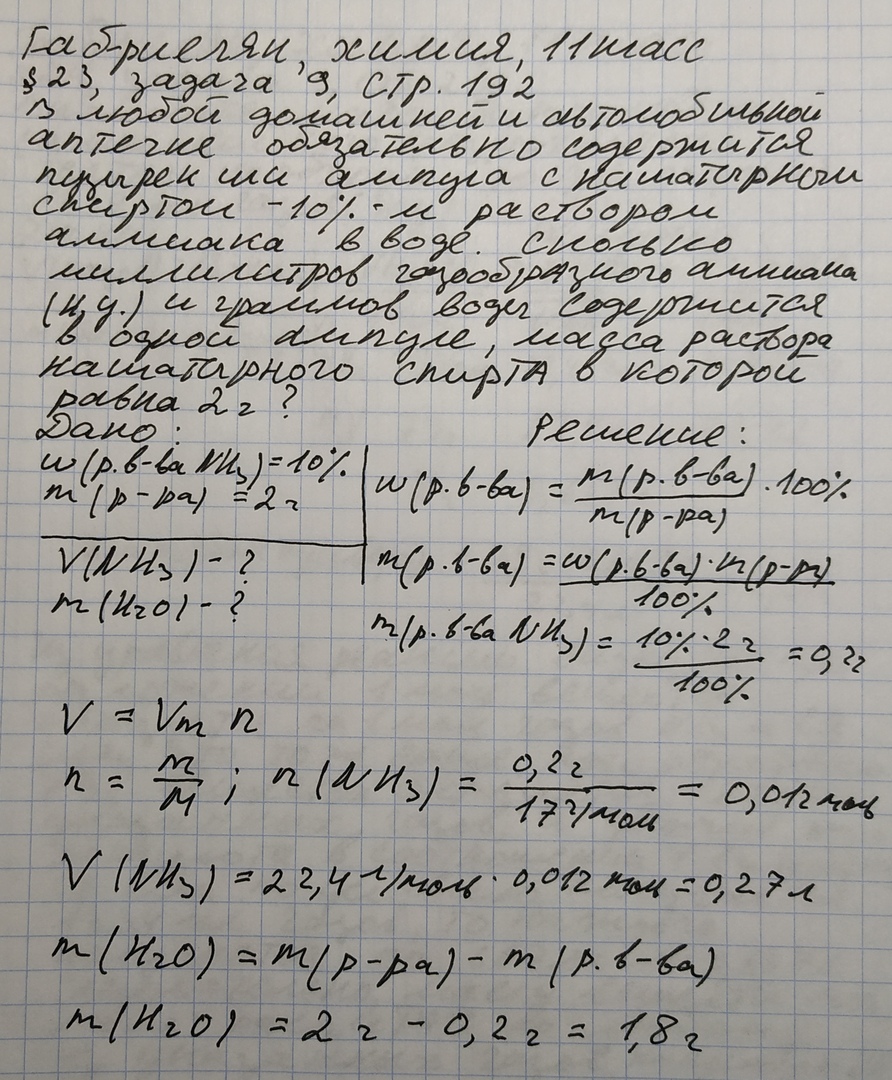 Габриелян, химия, 11 класс
§ 23, задача 9, стр. 192
В любой домашней и автомобильной
аптечке обязательно содержится
пузырек или ампула с нашатырным
спиртом -10%-м раствором
аммиака в воде. Сколько
миллилитров газообразного аммиака
(н,у.) и граммов воды содержится
в одной ампуле, масса раствора
нашатырного спирта в которой
равна 2 г ?
Дано:
Решение:
w(р.в-ва NH₃)=10%
m (р-ра) = 2 г
V(NH₃) - ?
m(H₂O) - ?
w(р.в-ва) = m(р.в-ва)/m(р-ра) · 100%
m(р.в-ва) = w(р.в-ва)·m(р-ра)/100%
m(р.в-ва NH₃) = 10%·2 г/100% = 0,2г
V = Vm n
n = m/M ; n(NH₃) = 0,2г/17г/моль = 0,012 моль
V(NH₃) = 22,4 л/моль · 0,012 моль = 0,27 л
m(H₂O) = m(р-ра) - m(р.в-ва)
m(H₂O) = 2 г - 0,2 г = 1,8 г